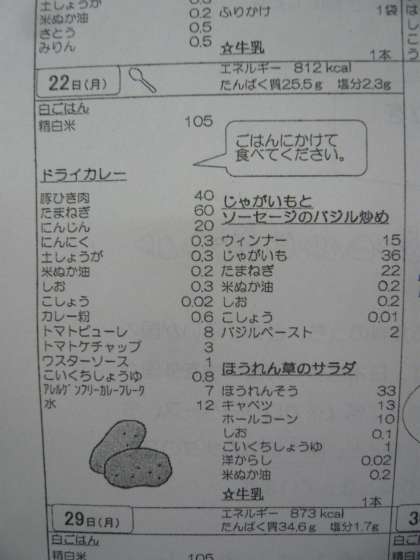 土しょうが 0.3
米ぬか油 0.2
さとう 0.5
みりん 0.5
ふりかけ 1袋
☆牛乳
1本
22日(月)
エネルギー 812kcal
たんぱく質25.5g 塩分2.3g
白ごはん
精白米 105
ごはんにかけて
食べてください。
ドライカレー
豚ひき肉 40
たまねぎ 60
にんじん 20
にんにく 0.3
土しょうが 0.3
米ぬか油 0.2
しお 0.3
こしょう 0.02
カレー粉 0.6
トマトピューレ 8
トマトケチャップ 3
ウスターソース 1
こいくちしょうゆ 0.8
アレルゲンフリーカレーフレーク 7
水 12
じゃがいもと
ソーセージのバジル炒め
ウィンナー 15
じゃがいも 36
たまねぎ 22
米ぬか油 0.2
しお 0.2
こしょう 0.01
バジルペースト 2
ほうれん草のサラダ
ほうれんそう 33
キャベツ 13
ホールコーン 10
しお 0.1
こいくちしょうゆ 1
洋からし 0.02
米ぬか油 0.2
☆牛乳
1本
29日(月)
エネルギー 873kcal
たんぱく質34.6g 塩分1.7g
白ごはん
精白米 105